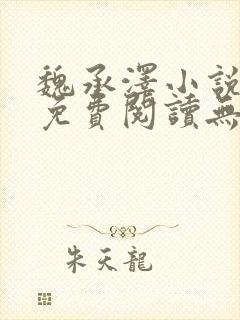 魏承澤小說
免費閱讀無
朱天龍